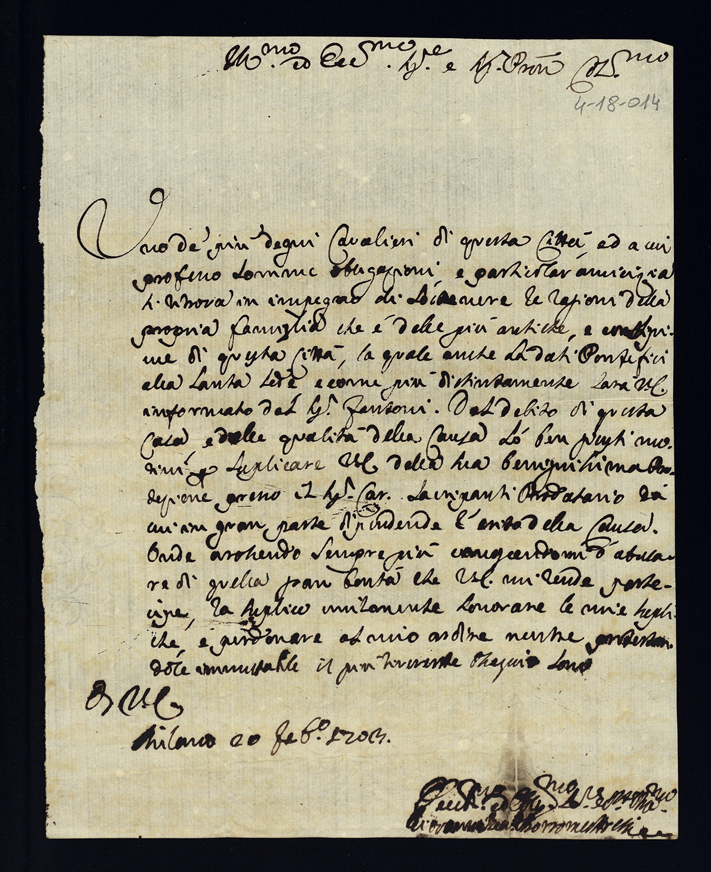 Ill.mo ed Ecc.mo Sig.re e Sig.r Pron Col.mo
4-18-014
Uno de' più degni Cavalieri di questa Città, ed a cui
professo somme obligazioni, e particolar amicizia
si ritrova in impegno di sostenere le ragioni della
propria famiglia che è delle più antiche, e
di questa Città, la quale anche hà dati Pontefici
alla Santa Sede, e come più distintamente sarà V.E.
informato dal Sig.r Fantoni. Dal debito di questa
Casa, e dalle qualità della Causa hò ben giusti mo-
tivi p supplicare V.E. della sua benignissima
presso il Sig.r Car. Sacripanti Prodatario da
cui in gran parte dipende l'esito della Causa.
Onde arrossendo sempre più d'abusa-
re di quella gran bontà che V.E. mi rende parte-
cipe, la supplico umilmente honorare le mie suppli-
che, e perdonare al mio ardire mentre protestan-
dole immutabile il più riverente ossequio sono
Di V.E.
Milano 20 Feb.o 1703.